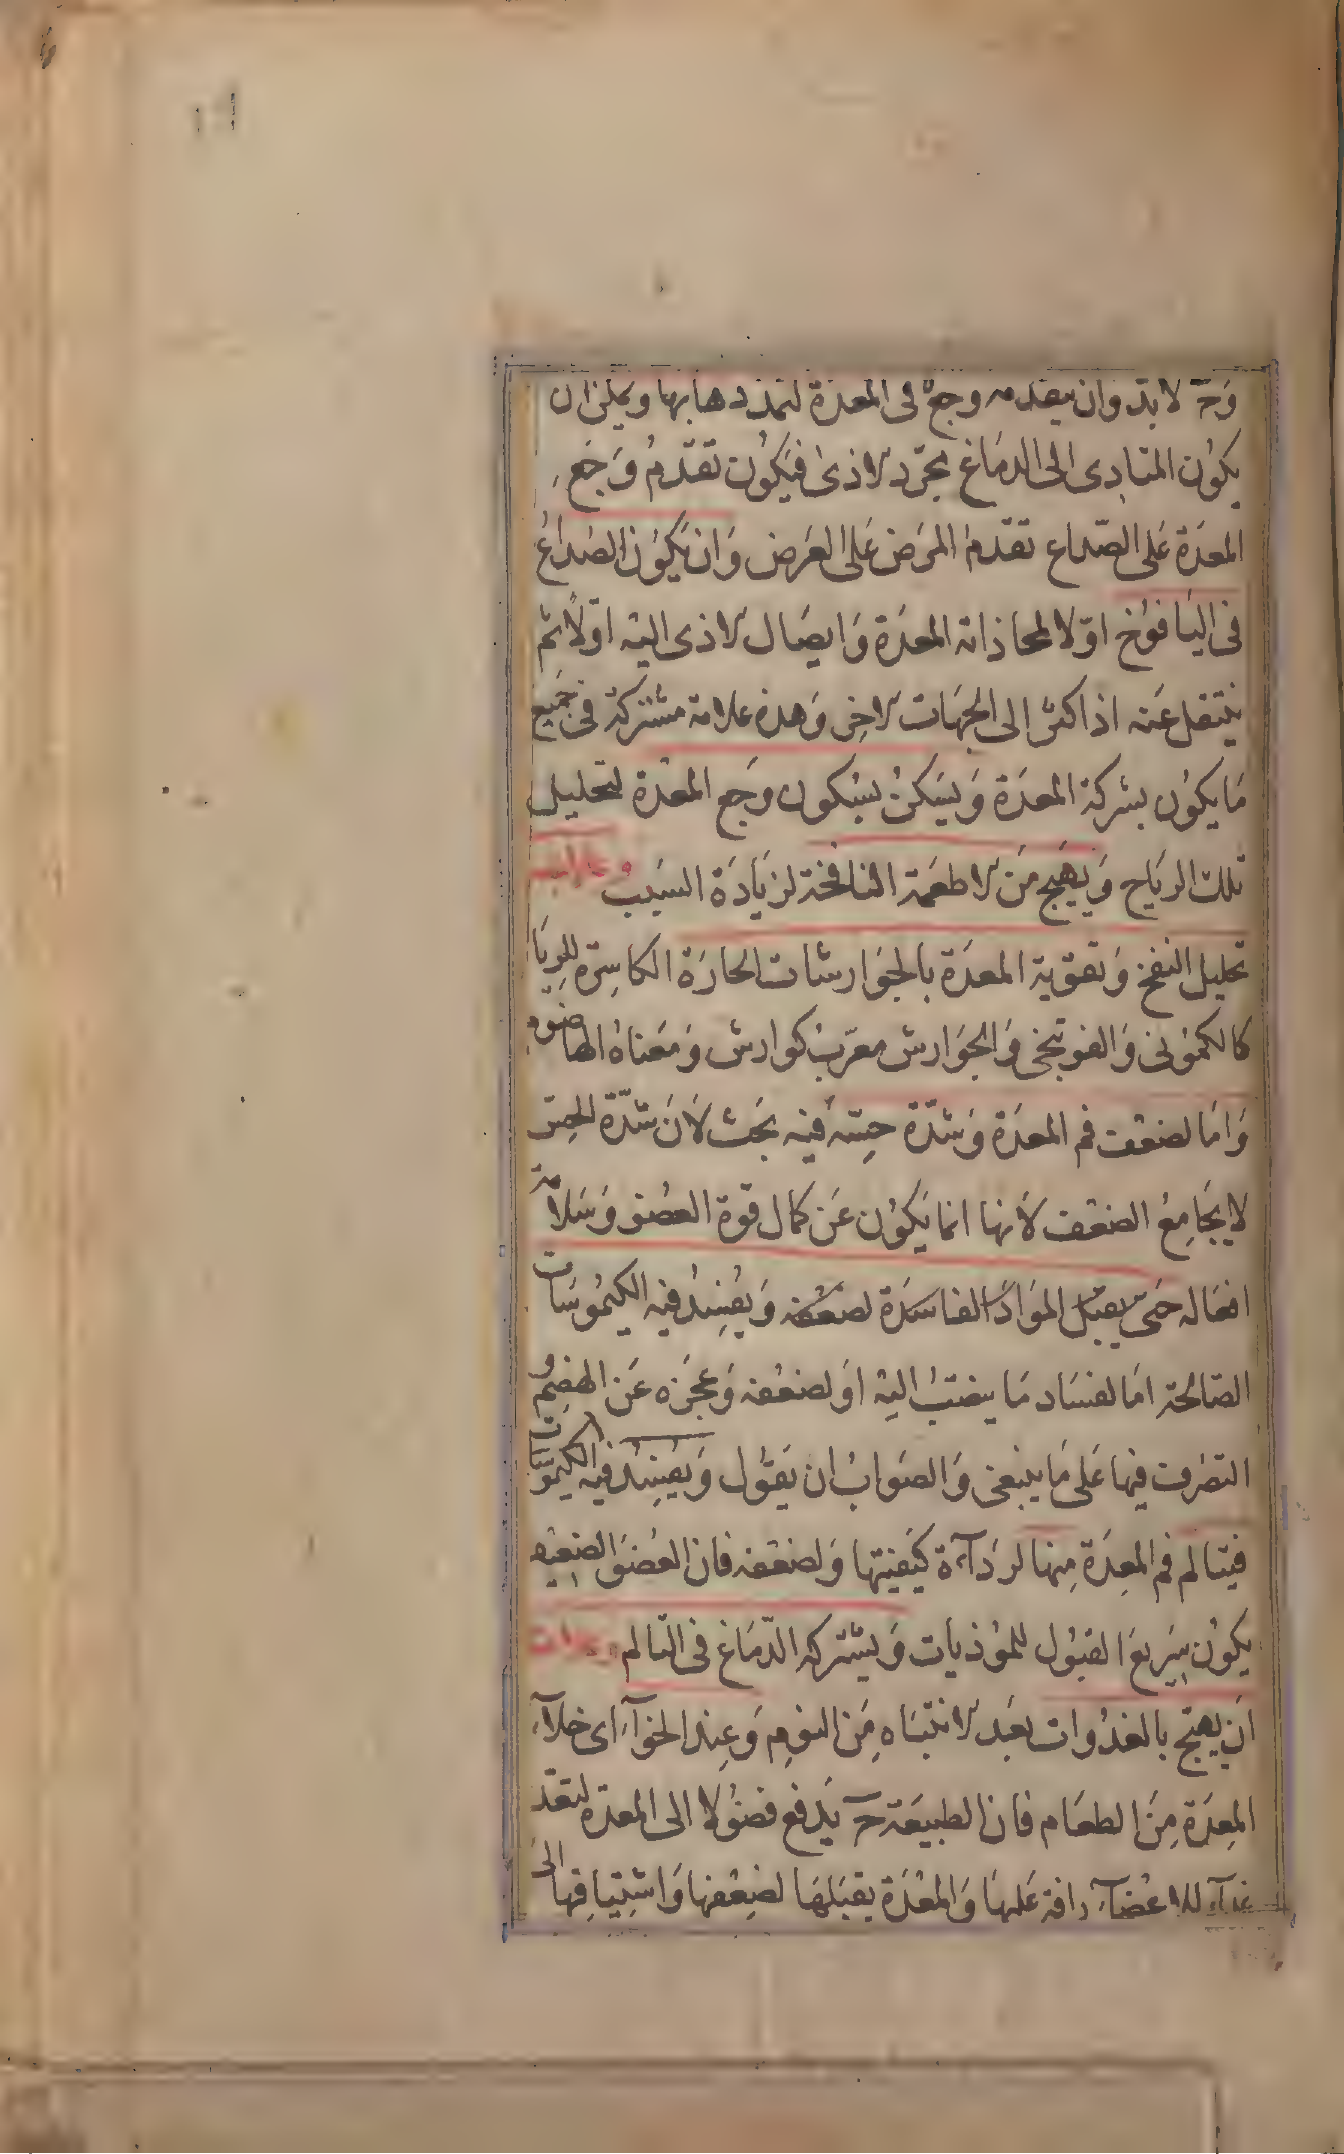 وَحّ لا بدّ وان يتقدمه وجعٌ فى المعدة لتمددها بها ويمكن ان
يكون المتادى الى الدماغ مجرّد الاذى فيكون تقدّمُ وَجَع
المعدَة عَلى الصّداع تقدّمَ المرَض عَلى العَرض وَان يَكون الصُداعُ
فى اليَافوُخ اوّلا لمحاذاته المعدَة وَايصَال الاذى اليه اوّلاً ثم
ينتقل عَنه اذا كثر الى الجهَات الاخر وَهذه علامة مشتركة فى جَميع
مَا يكوُن بشركة المعدَة وَيَسَكنُ بسُكون وَجَع المعدة لتحليل
تلك الرياح وَيهَيج مَن الاطعمَة النافخة لزيَادَة السَبب وعلاجه
تحليل النفخ وَتقوية المعدَة بالجوَارشات الحارَة الكاسِرَة للريَا
كالكموُنى وَالفوتنجى وَالجوَارش معرّبُ كوارش وَمَعناهُ الهاضوم
وَامَا لضعف فم المعدَة وَشدّة حِسّه فيه بَحَث لاَن شدّة الحسّ
لا يجَامِعُ الضعف لاَنها انما يَكوُن عَن كمال قوة العضو وَسَلامة
افعَاله حَتى يقبَل المَوادّ الفاسَدَة لضعفه وَيفُسِدُ فيه الكيمُوسَات
الصَالحة امَا لفسَاد مَا ينصَبُ اليه اوَ لضعفه وَعجَزه عَن الهضم و
التصَرف فيها عَلى مَا ينبغى وَالصَوابُ ان يَقول وَيفسِدُ فيه الكيموسات
فيتالم فم المعِدَة مِنها لردَآءة كيَفيتها وَلضعفه فان العُضوَ الضعيف
يكوُن سَريعَ القبُول للموُذيات وَيشترکه الدّمَاغ فى التالم وعلامته
اَن يهيّج بالغدُوات بعَد الانتبَاه مِن النوم وَعِند الخوآء اى خلآء
المعِدَة مِن الطعَام فان الطبيعَة حّ يَدفع فضوُلا الى المعدَة لتفقد
غذآء للاعضآء دافة عَليهَا وَالمعْدَة يقبَلهَا لضعِفها وَاشتِيَاقِها الى